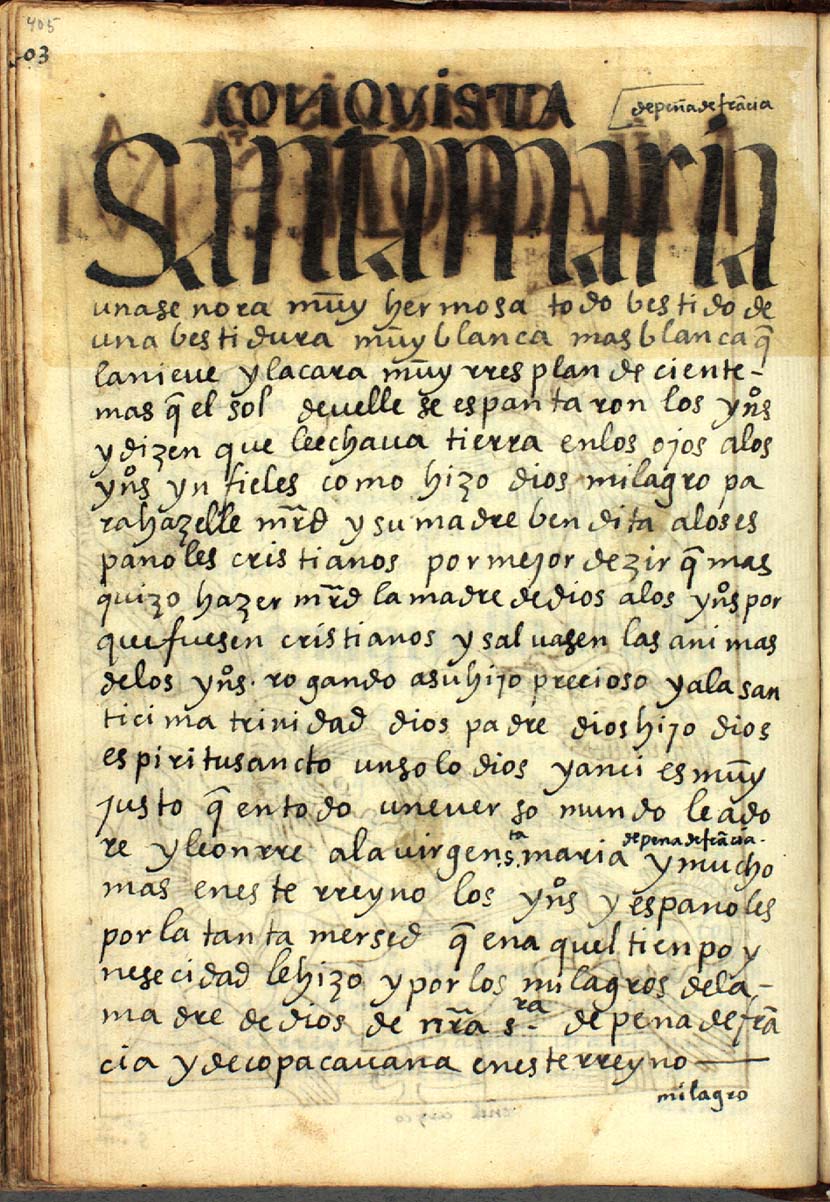 405
03
CONQVISTA
de peña de frācia
Santa maria
una senora mūy hermosa todo bestido de
una bestidura mūy blanca mas blanca q̄
la nieve y la cara mūy rresplandeciente-
mas q̄ el sol de velle se espantaron los ynºs
y dizen que le echava tierra en los ojos a los
ynºs ynfieles como hizo dios milagro pa
ra hazelle mr̄d y su madre bendita a los es
panoles cristianos por mejor dezir q̄ mas
quizo hazer mr̄d la madre de dios a los ynºs por
que fuesen cristianos y salvasen las animas
de los ynºs. rogando a su hijo precioso y a la san
ticima trinidad dios padre dios hijo dios
espiritu sancto un solo dios y anci es mūy
justo q̄ en todo unever so mundo le ado
re y leonrre a la virgen .s.ta maria de pena de frācia. y mucho
mas en este rreyno los ynºs y espanoles
por la tanta mersed q̄ en aquel tienpo y
nesecidad le hizo y por los milagros de la-
madre de dios de nr̄a s.ra de pena de frā
cia y de copacavana en este rreyno —
milagro